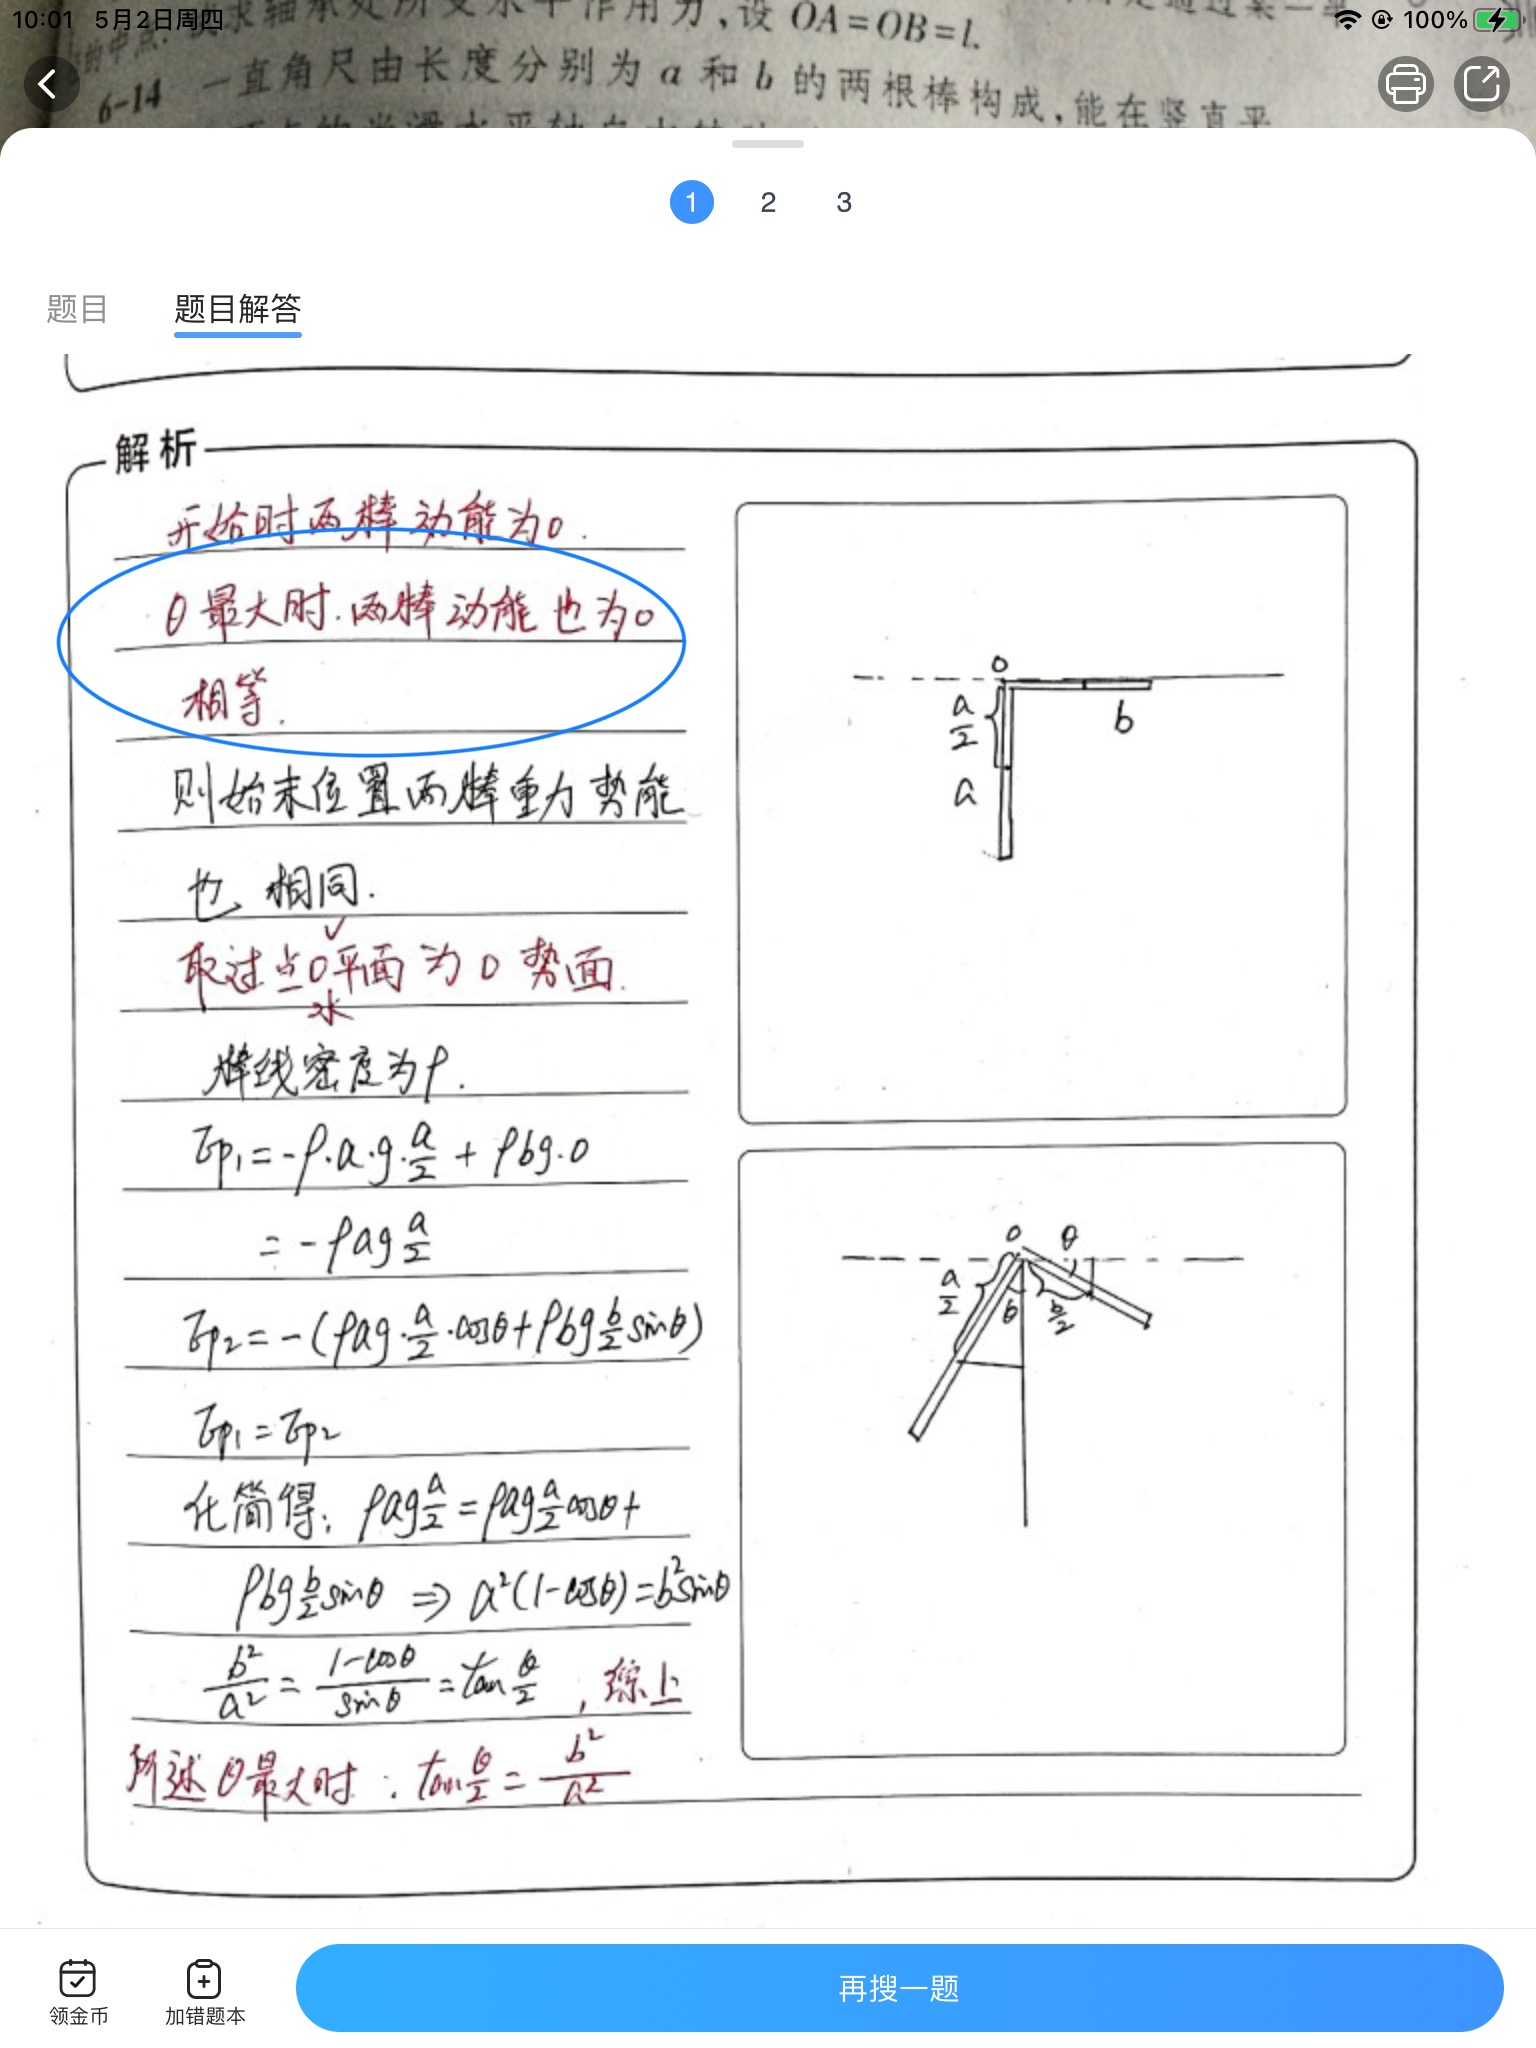 10:01 5月2日周四
100%
求轴承处所受水平作用力,设 OA=OB=l.
6-14 一直角尺由长度分别为 a 和 b 的两根棒构成,能在竖直平
1 2 3
题目 题目解答
解析
开始时两棒动能为0.
θ最大时.两棒动能也为0
相等.
则始末位置两棒重力势能
也相同.
取过点O平面为0势面.
水
棒线密度为ρ.
Ep₁=-ρ·a·g·a/2+ρbg·0
=-ρag a/2
Ep₂=-(ρag·a/2·cosθ+ρbg b/2 sinθ)
Ep₁=Ep₂
化简得: ρag a/2=ρag a/2 cosθ+
ρbg b/2 sinθ ⇒ a²(1-cosθ)=b²sinθ
b²/a²=(1-cosθ)/sinθ=tan θ/2 ,综上
所述θ最大时:tan θ/2=b²/a²
O
a/2
b
a
O θ
a/2
θ
b/2
领金币
加错题本
再搜一题